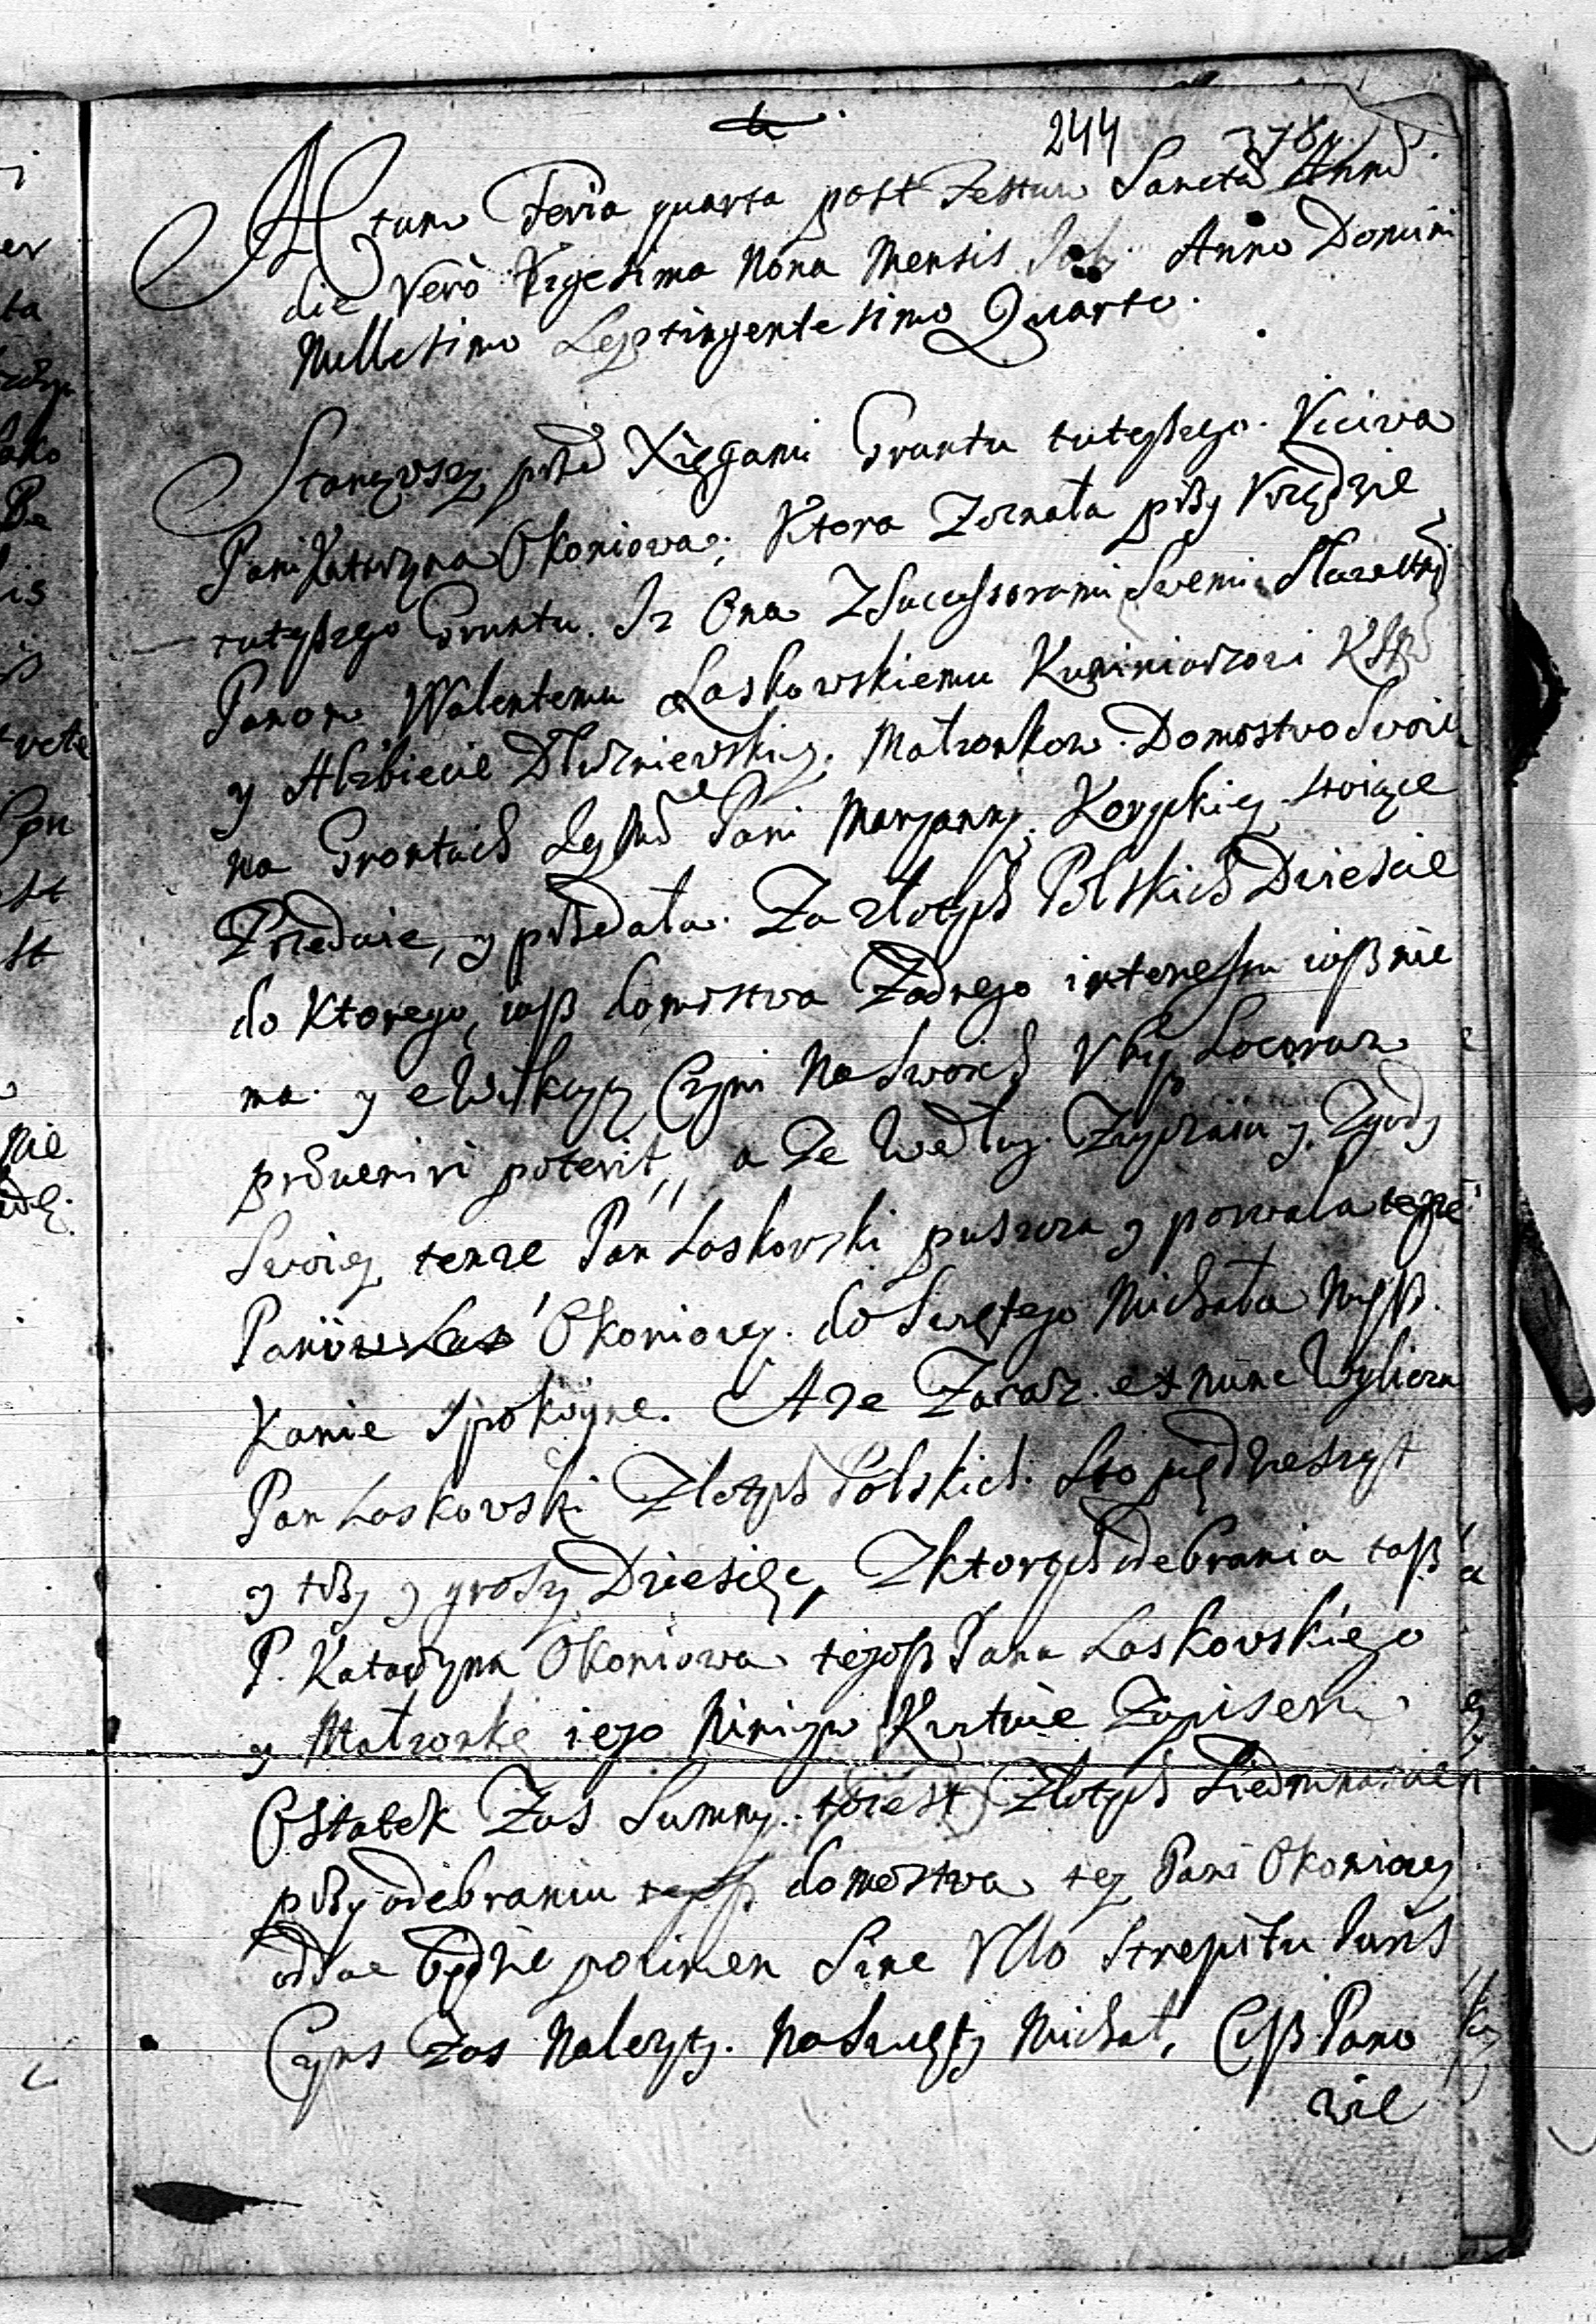 244
Actum Feria quarta post Festum Sanctae Annae
die Vero Vigesima Nona Mensis Anno Domini
Millesimo Septingentesimo Quarto.
Stanąwszy przed Xięgami Gruntu tuteyszego. Vcciwa
Pani Katarzyna Okoniowa; Ktora Zeznała przy Vrzędzie
tuteyszego Gruntu. Iz Ona Z Successorami Swemi Sławetny
Panom Walentemu Laskowskiemu Kusnierzowi
y Alzbiecie Małzonkow. Domostwo Swoie
na Grontach Pani Maryanny stoiące
Przedaie, y przedała. Za złotych Polskich
do Ktorego, iusz domostwa Zadnego interessu iusz nie
ma. y ewikcyą Czyni Na Swoich Vbiq Locorum
provenivi poterit,, a Ze Według y Zgody
Swoiey tenze Pan Laskowski puszcza y pozwala teyze
Okoniowey. do Swętego Michała Mysz
kanie Spokoyne. A ze Zaraz. ex nunc Wylicza
Pan Laskowski Złotych Polskich. Sto pędzieszyt
y trzy y groszy Dziesięc, Z ktorych odebrania tasz
P. Katarzyna Okoniowa tegosz Pana Laskowskiego
y Małzonkę iego Ninieyszym Kwituie Zapisem
Ostatek Zas Summy. to iest Złotych
przy odebraniu domostwa tey Pani Okoniowey
oddac będzie powinen Sine Vllo Strepitu Iuris
Czyns Zas Nalezyty. Na Swęty Michał, Cisz Pano
wie